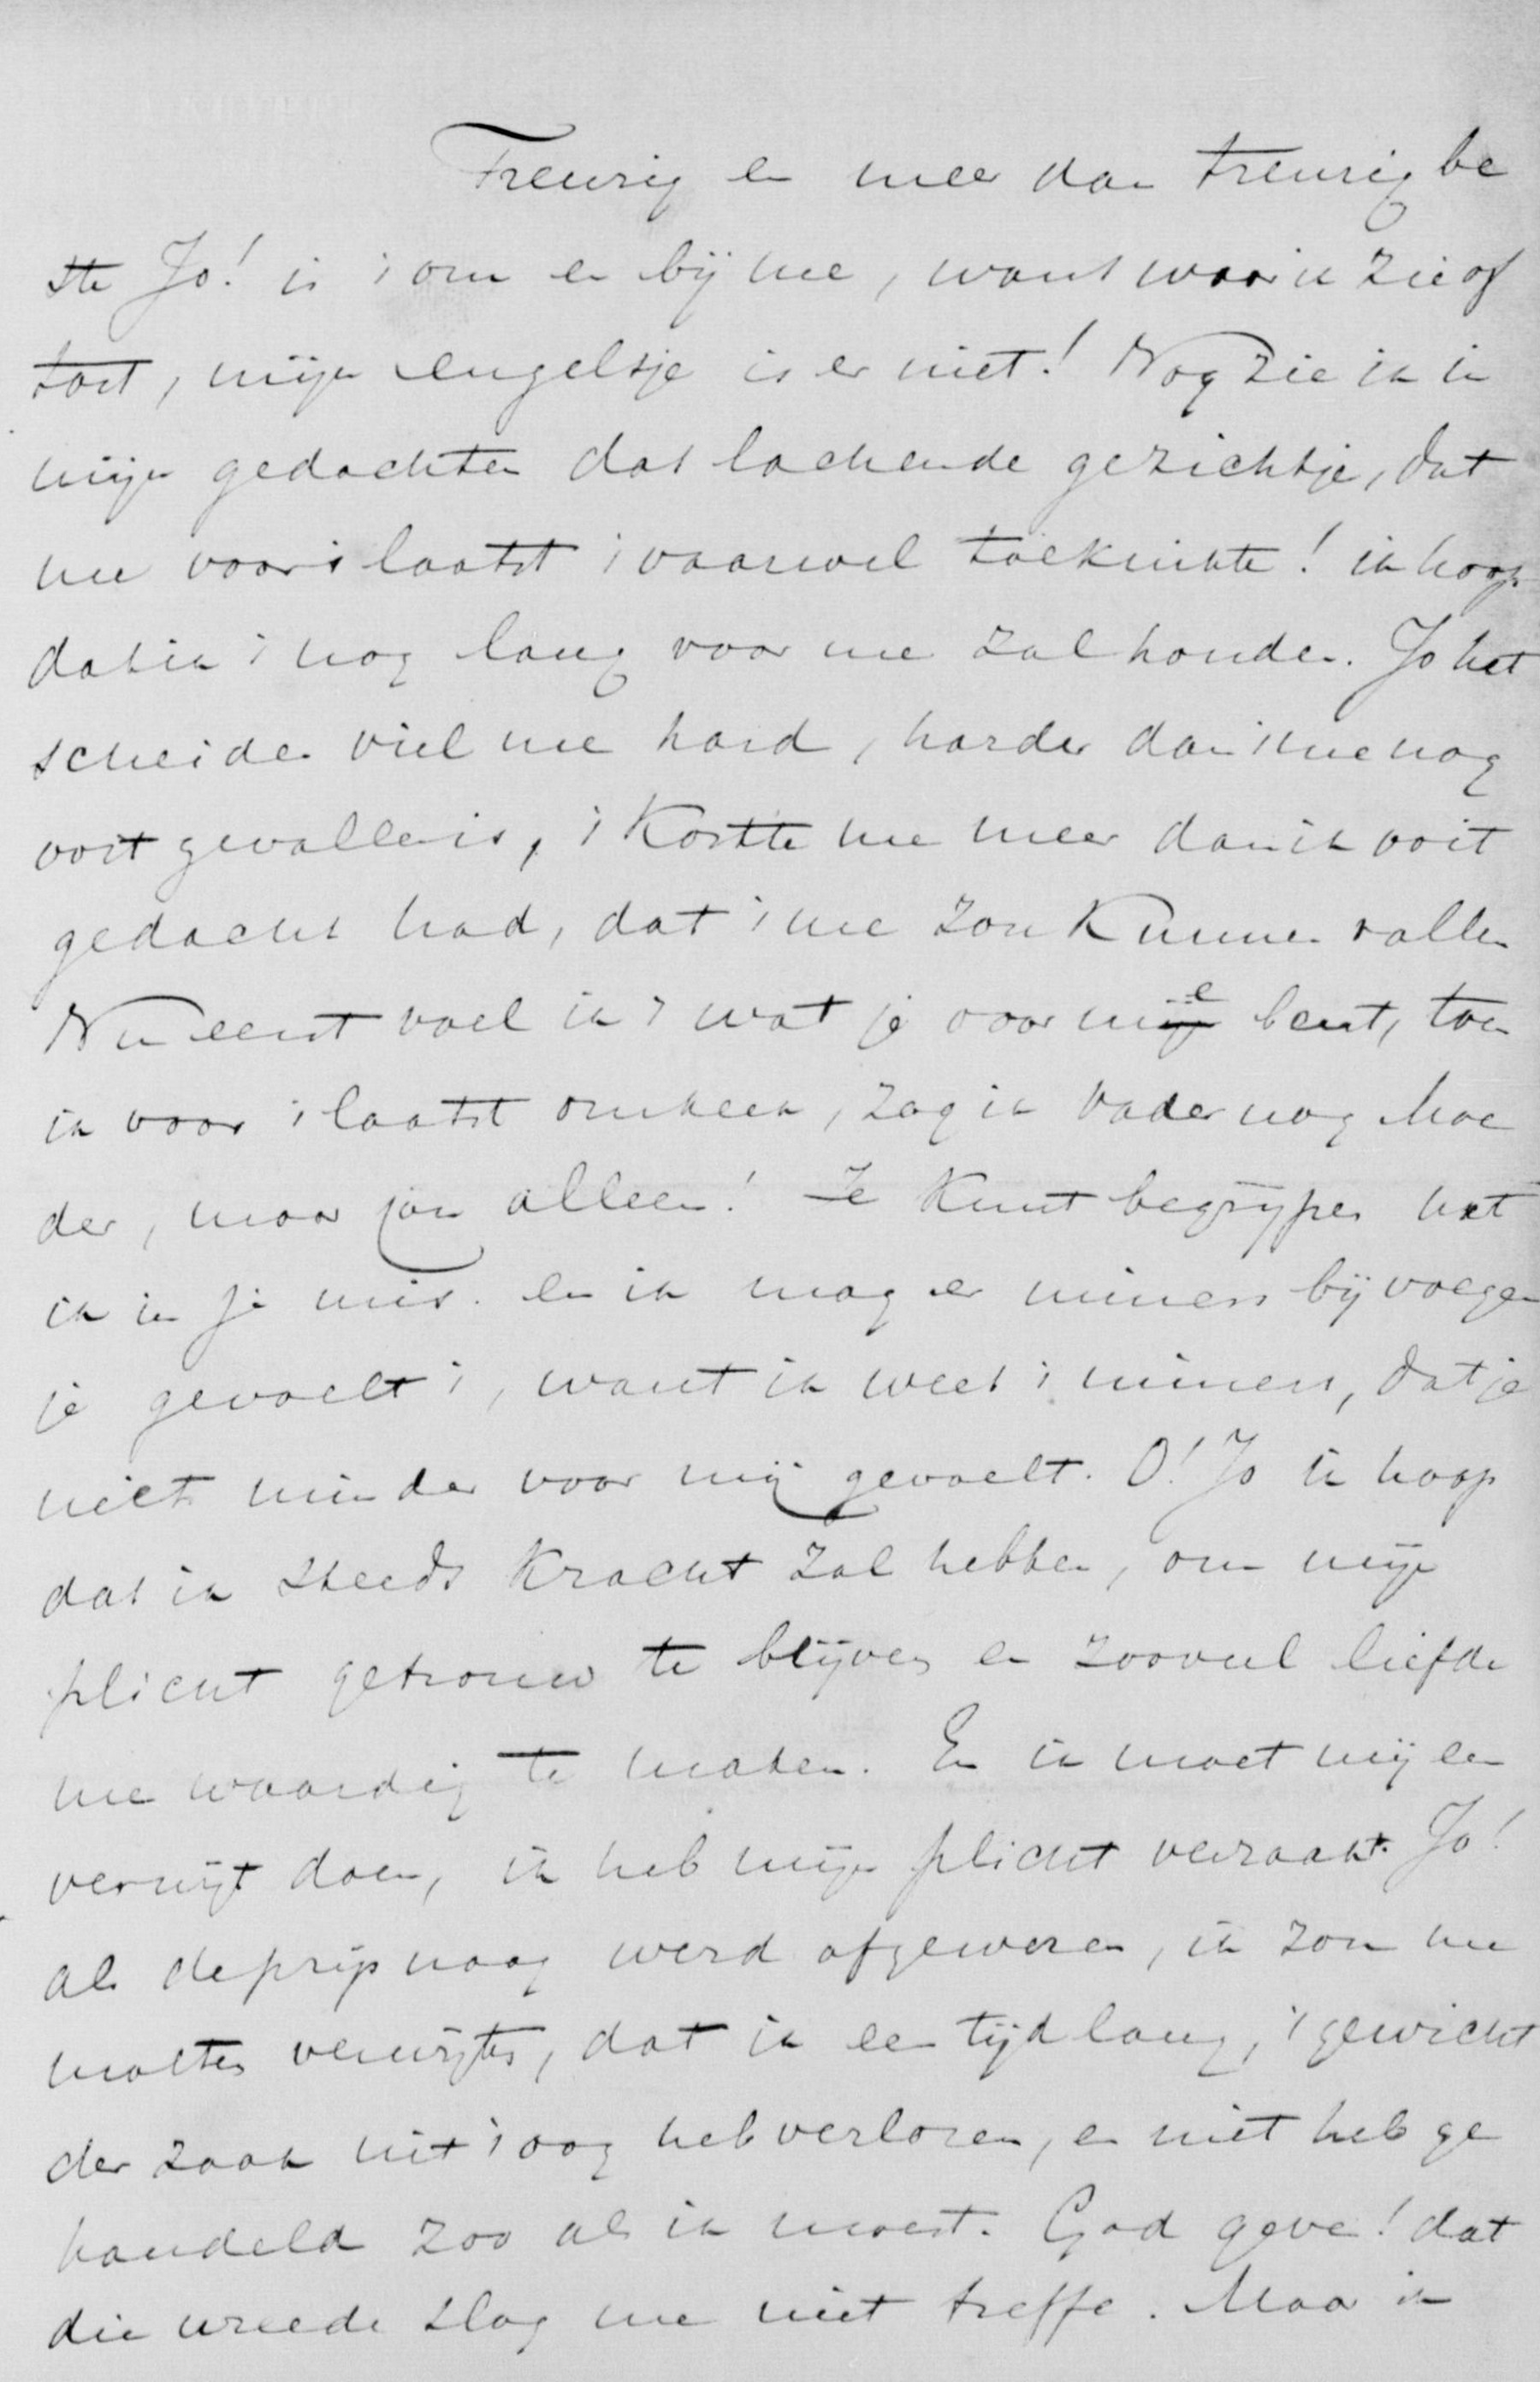 Treurig en meer dan treurig be
ste Jo! is 't om en bij me, want waar ik zie of
tast, mijn engeltje is er niet! Nog zie ik in
mijn gedachten dat lachende gezichtje, dat
me voor 't laatst 't vaarwel toeknikte! ik hoop
dat ik 't nog lang voor me zal houden. Jo het
scheiden viel me hard, harder dan 't me nog
ooit gevallen is, 't kostte me meer dan ik ooit
gedacht had, dat 't me zou kunnen vallen
Nu eerst voel ik 't wat je voor me bent, toen
ik voor 't laatst omkeek, zag ik vader nog Moe
der, maar jou alleen! Je kunt begrijpen wat
ik in je mis. en ik mag er immers bijvoegen
je gevoelt 't, want ik weet 't immers, dat je
niet minder voor mij gevoelt. O! Jo ik hoop
dat ik steeds kracht zal hebben, om mijn
plicht getrouw te blijven en zooveel liefde
me waardig te maken. En ik moet mij een
verwijt doen, ik heb mijn plicht verzaakt. Jo!
als de prijsvraag werd afgewezen, ik zou me
moeten verwijten, dat ik een tijd lang, 't gewicht
der zaak uit 't oog heb verloren, en niet heb ge
handeld zoo als ik moest. God geve! dat
die wreede slag me niet treffe. Maar ik